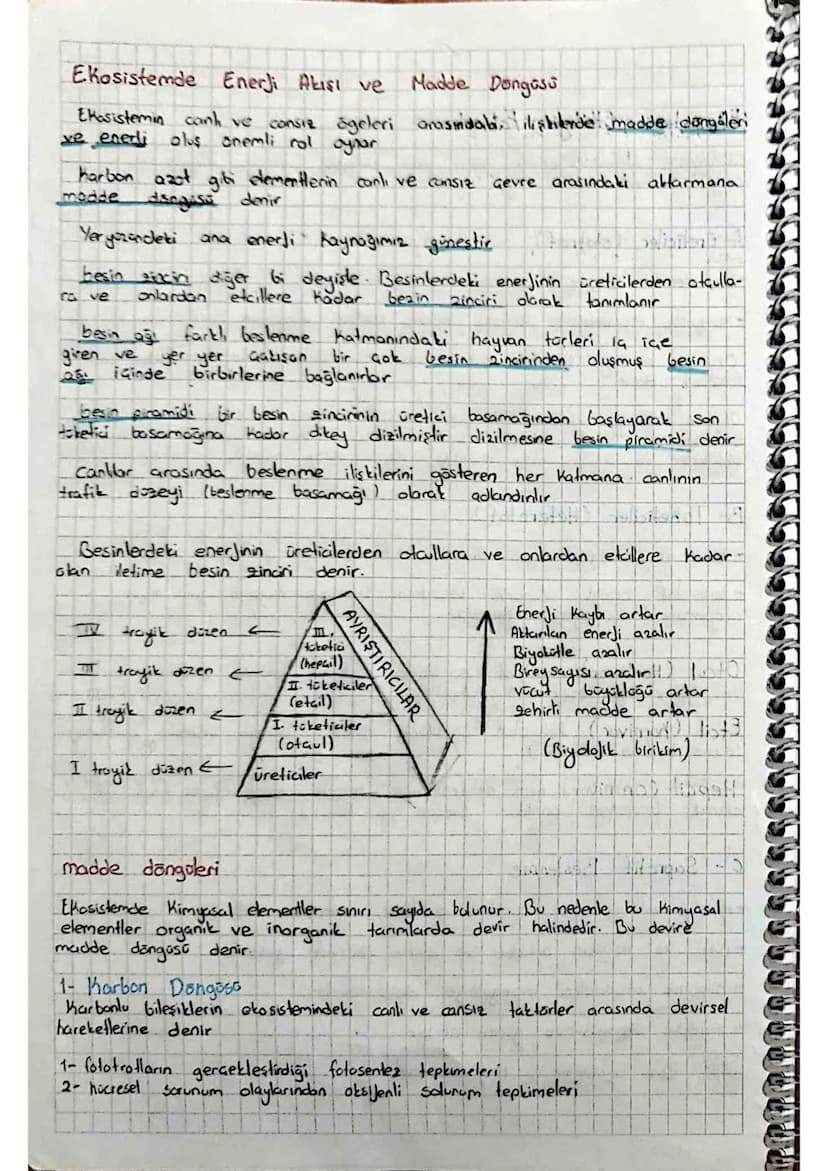 Ekosistemde Enerji Akışı ve Madde Döngüsü
Ekosistemin canlı ve cansız ögeleri arasındaki, ilişkilerde madde döngüleri
ve enerji oluş önemli rol oynar
Karbon azot gibi elementlerin canlı ve cansız çevre arasındaki aktarmana
madde döngüsü denir
Yer yüzündeki ana enerji kaynağımız güneştir
besin zincin diğer bi deyişle. Besinlerdeki enerjinin üreticilerden otçulla-
ra ve onlardan etcillere kadar bezin zinciri olarak tanımlanır
besin ağı farklı beslenme katmanındaki hayvan türleri iç içe
giren ve yer yer çakışan bir çok besin zincirinden oluşmuş besin
ağı içinde birbirlerine bağlanırlar
besin piramidi bir besin zincirinin üretici basamağından başlayarak son
tüketici basamağına kadar dikey dizilmiştir dizilmesine besin piramidi denir
canlılar arasında beslenme ilişkilerini gösteren her katmana canlının
trafik düzeyi (beslenme basamağı) olarak adlandırılır
Besinlerdeki enerjinin üreticilerden otcullara ve onlardan etcillere kadar
olan iletime besin zinciri denir.
IV trofik düzen
III trofik düzen
II trofik düzen
I trofik düzen
III.
tüketici
(hepçil)
II. tüketiciler
(etçil)
I. tüketiciler
(otçul)
üreticiler
AYRIŞTIRICILAR
Enerji Kaybı artar
Aktarılan enerji azalır
Biyokütle azalır
Birey sayısı azalır
vücut büyüklüğü artar
zehirli madde artar
(Biyolojik birikim)
madde döngüleri
Ekosistemde Kimyasal elementler sınırı sayıda bulunur. Bu nedenle bu Kimyasal
elementler organik ve inorganik tarımlarda devir halindedir. Bu devire
madde döngüsü denir.
1- Karbon Döngüsü
Karbonlu bileşiklerin ekosistemindeki canlı ve cansız faktörler arasında devirsel
hareketlerine denir
1- fototrofların gerçekleştirdiği fotosentez tepkimeleri
2- hücresel sorunum olaylarından oksijenli solunum tepkimeleri